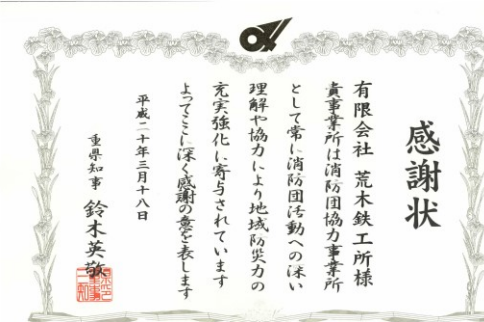 感謝状
有限会社 荒木鉄工所様
貴事業所は消防団協力事業所
として常に消防団活動への深い
理解や協力により地域防災力の
充実強化に寄与されています
よってここに深く感謝の意を表します
平成二十年三月十八日
重県知事 鈴木英敬